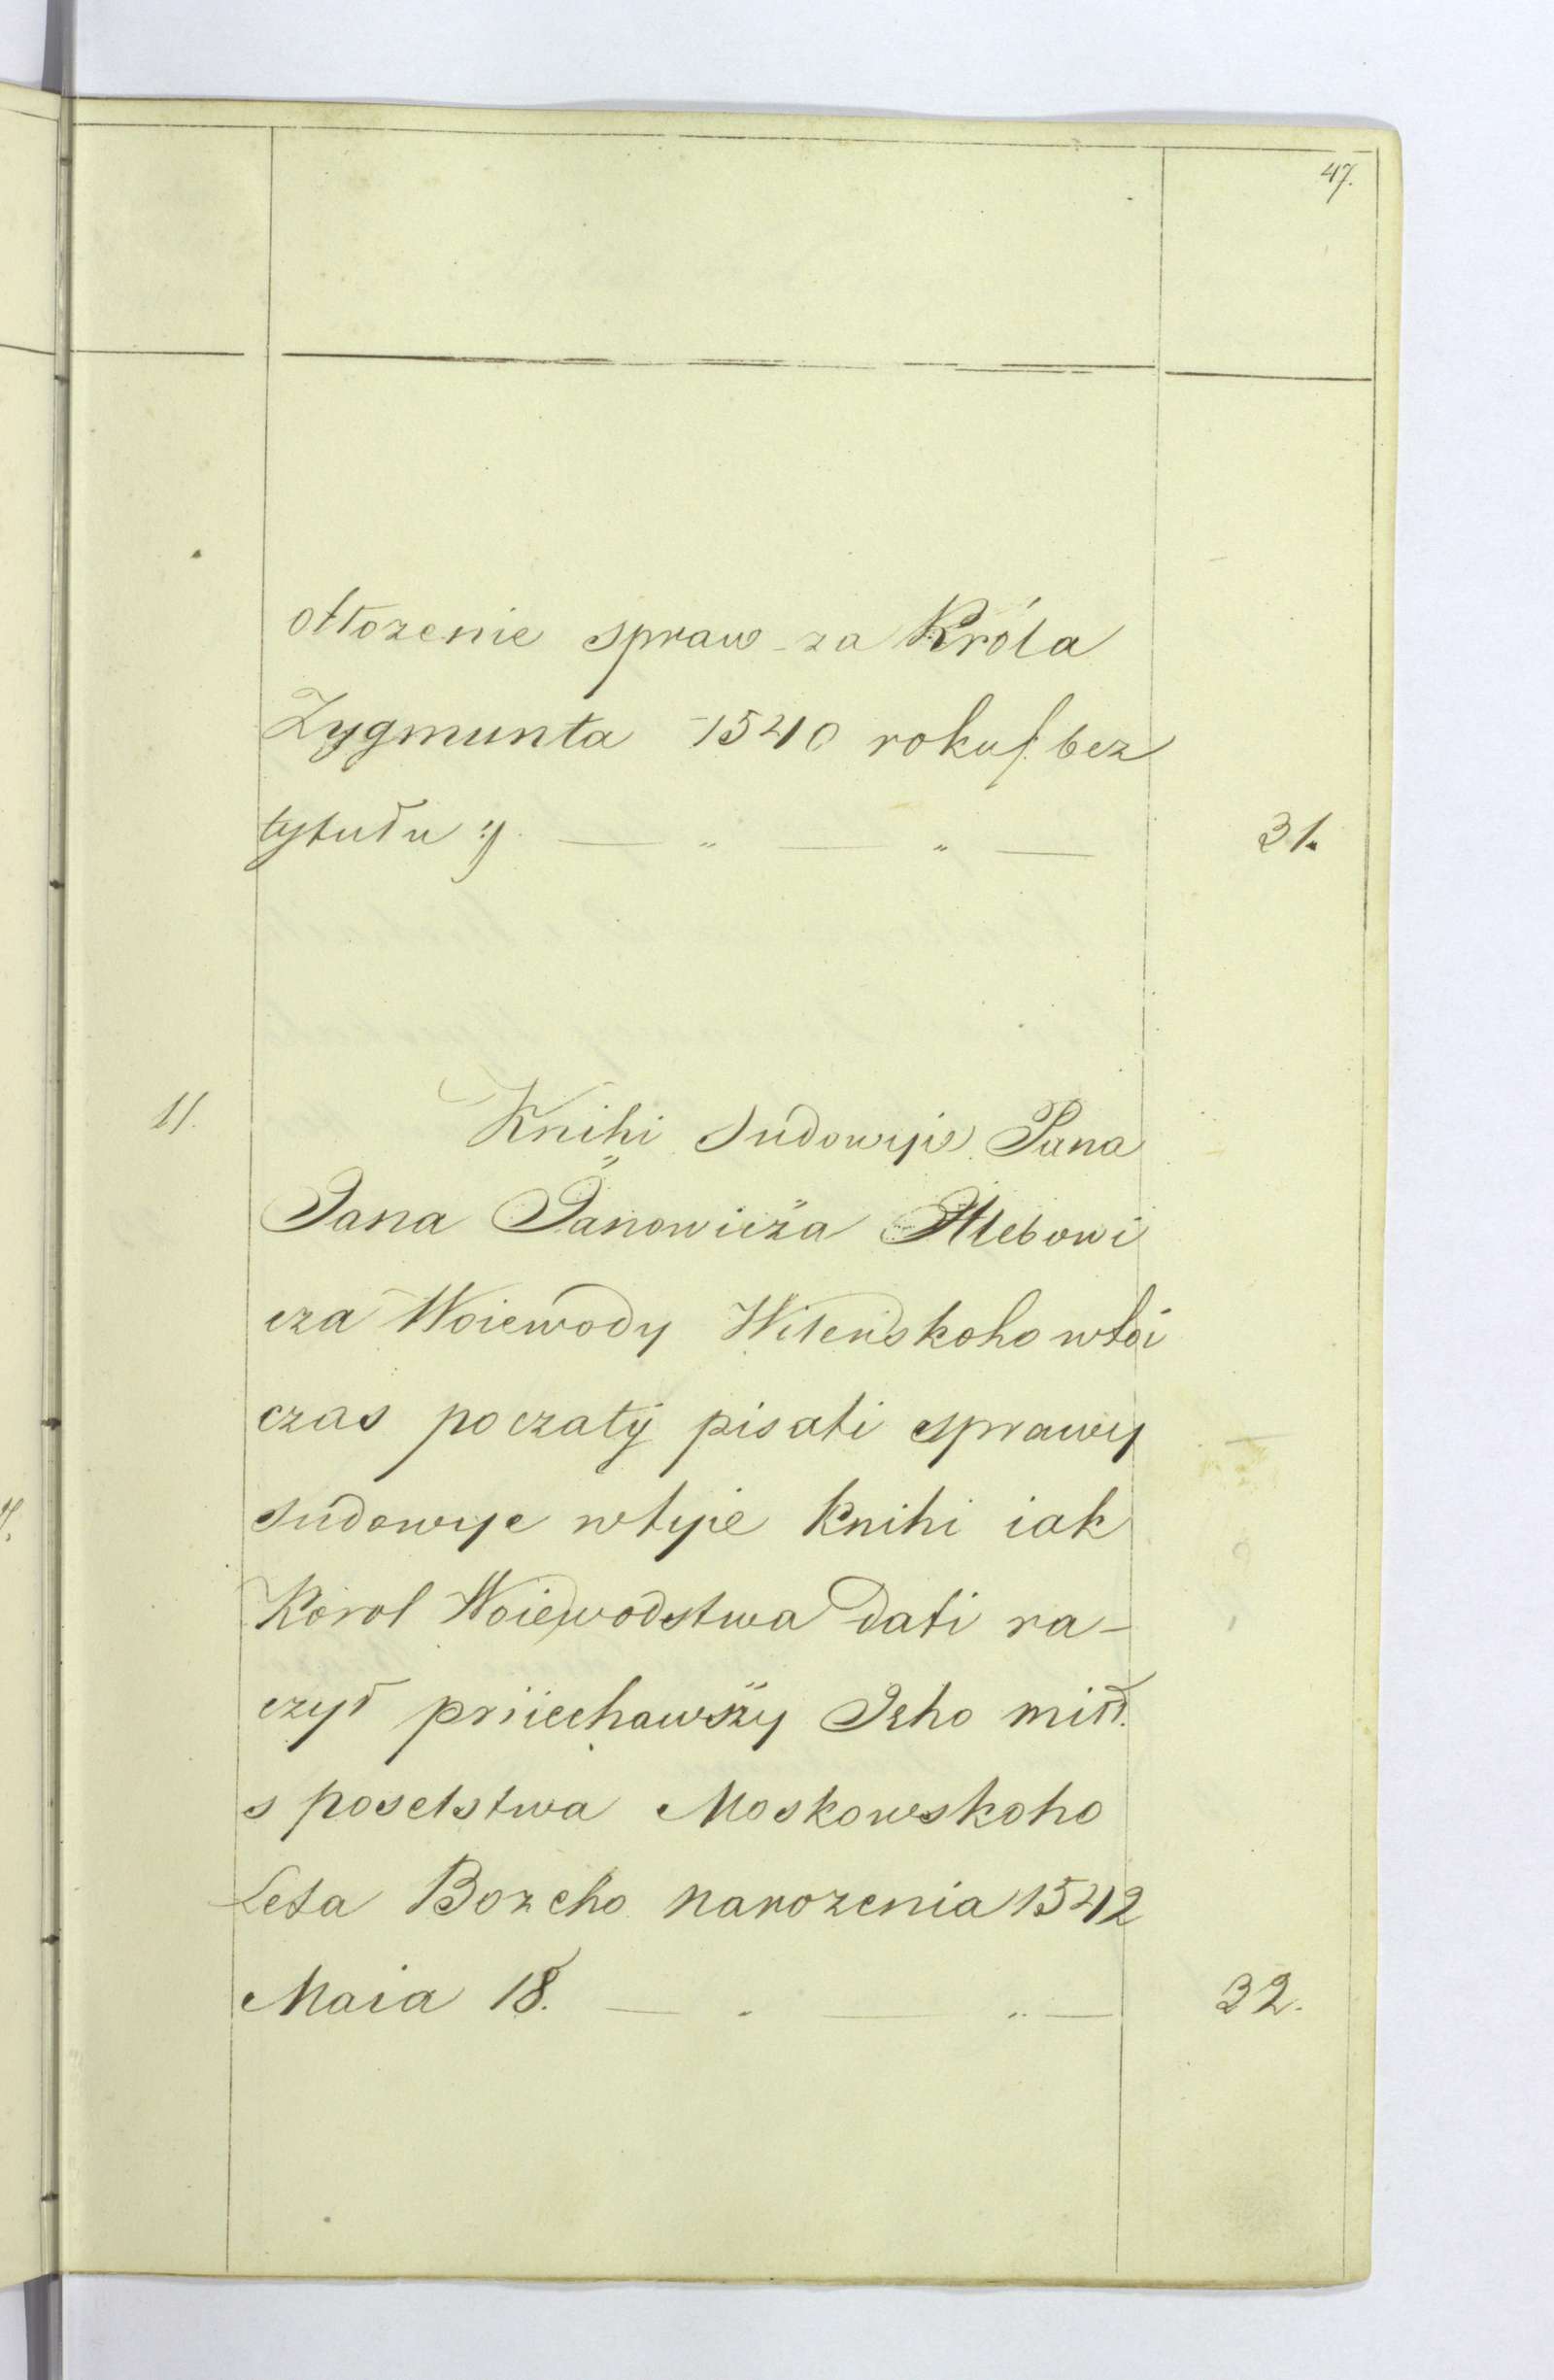 47.
otłozenie spraw za Króla
Zygmunta 1540 roku /: bez
tytułu :/ — " — " — 31.
11. Knihi sudowyie Pana
Jana Janowicza Hlebowi
cza Woiewody Wilenskoho wtoi
czas poczaty pisati sprawy
sudowye wtyie Knihi iak
Korol Woiewodstwa dati ra-
czył priiechawszy Jeho mił.
s poselstwa Moskowskoho
Leta Bozeho narozenia 1542
Maia 18. — " — " — 32.